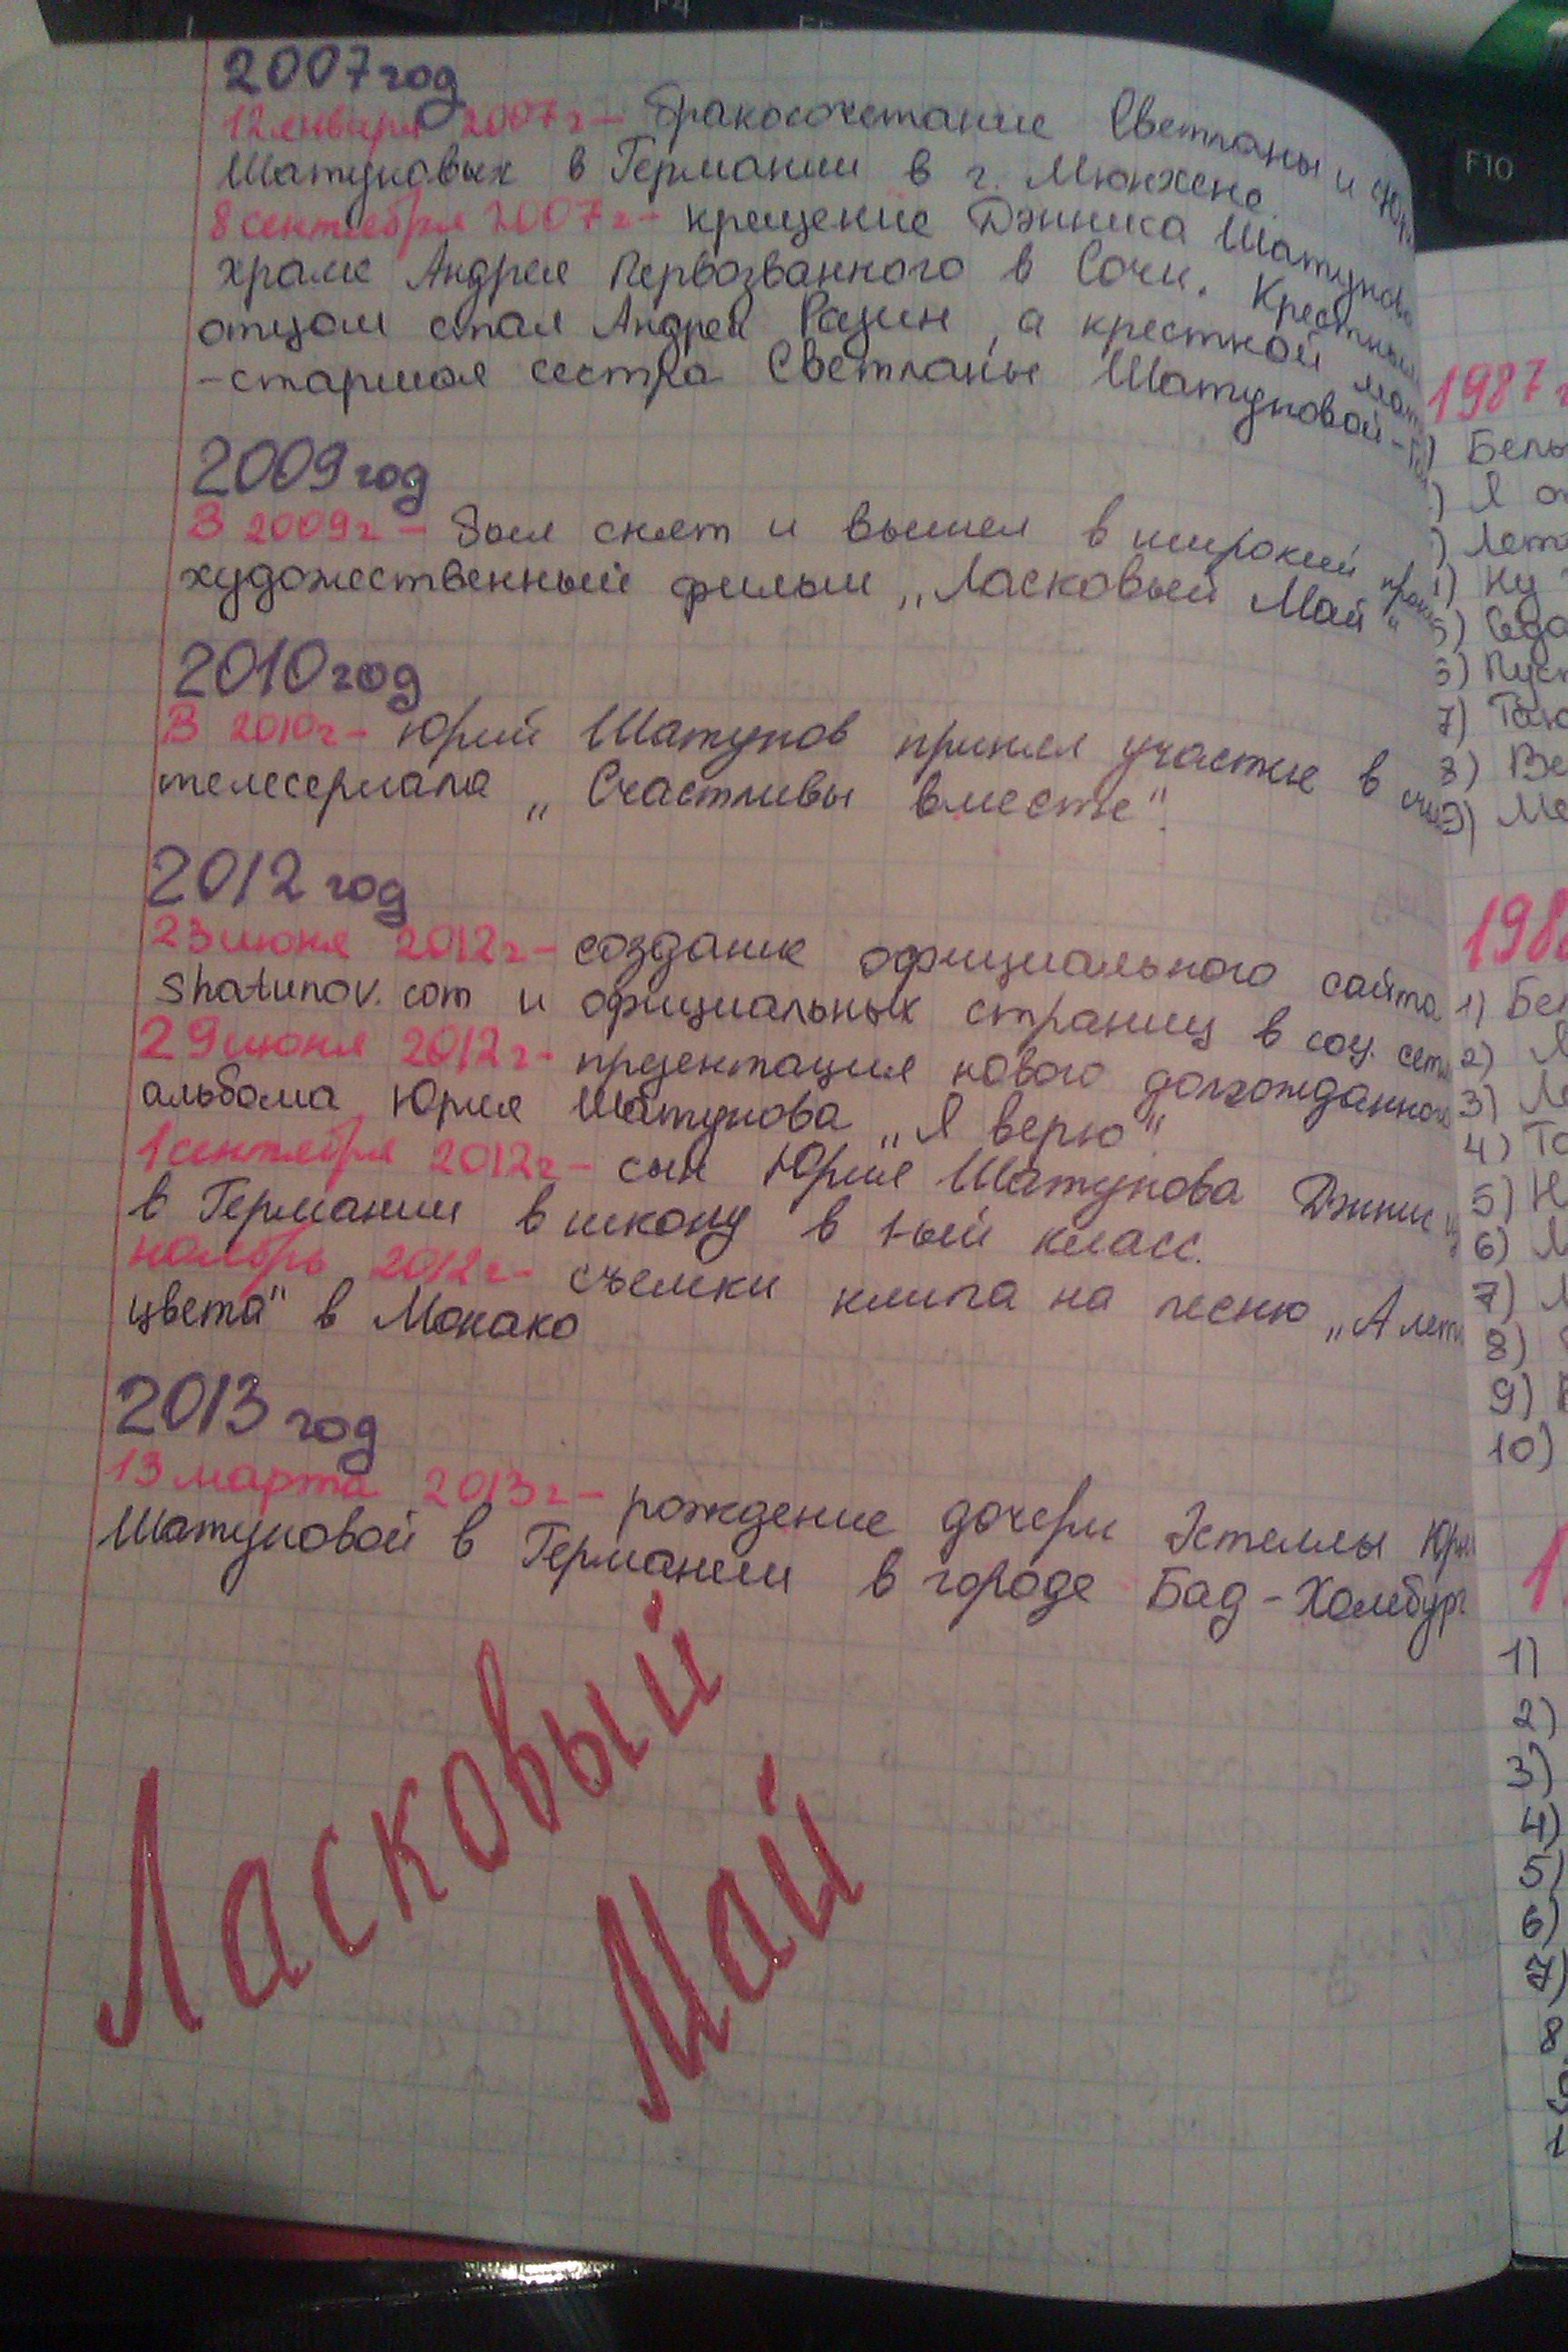 2007 год
12 января 2007г – бракосочетание Светланы и Юр
Шатуновых в Германии в г. Мюнхене.
8 сентября 2007г – крещение Дэнниса Шатунова
храме Андрея Первозванного в Сочи. Крестным
отцом стал Андрей Разин, а крестной мат
– старшая сестра Светланы Шатуновой –
2009 год
В 2009г – был снят и вышел в широкий прок
художественный фильм „Ласковый Май"
2010 год
В 2010г – Юрий Шатунов принял участие в
телесериала „Счастливы вместе".
2012 год
23 июня 2012г – создание официального сайта
Shatunov.com и официальных страниц в соц. сет
29 июня 2012г – презентация нового долгожданного
альбома Юрия Шатунова „Я верю"
1 сентября 2012г – сын Юрия Шатунова Дэннис
в Германии в школу в 1-ый класс.
ноябрь 2012г – съемки клипа на песню „А лет
цвета" в Монако
2013 год
13 марта 2013г – рождение дочери Эстеллы Юрь
Шатуновой в Германии в городе Бад-Хомбург
Ласковый
Май
1987 г
Белы
Я о
Лет
Ну
5) Седа
6) Пуст
7) Так
8) Ве
9) Ме
198
1) Бел
2)
3) Ле
4) То
5) Н
6)
7)
8)
9)
10)
1
1)
2)
3)
4)
5)
6)
7)
8